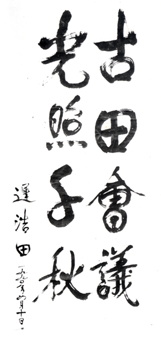 古田會議
光照千秋
遲浩田